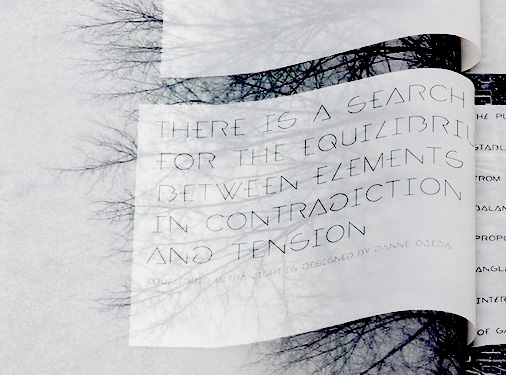 THERE IS A SEARCH
FOR THE EQUILIBRIU
BETWEEN ELEMENTS
IN CONTRADICTION
AND TENSION
ULTRA LIGHT IS DESIGNED BY DANNE OJEDA
HE PU
STABL
FROM
BALAN
PROPO
ANGL
INTER
OF GA